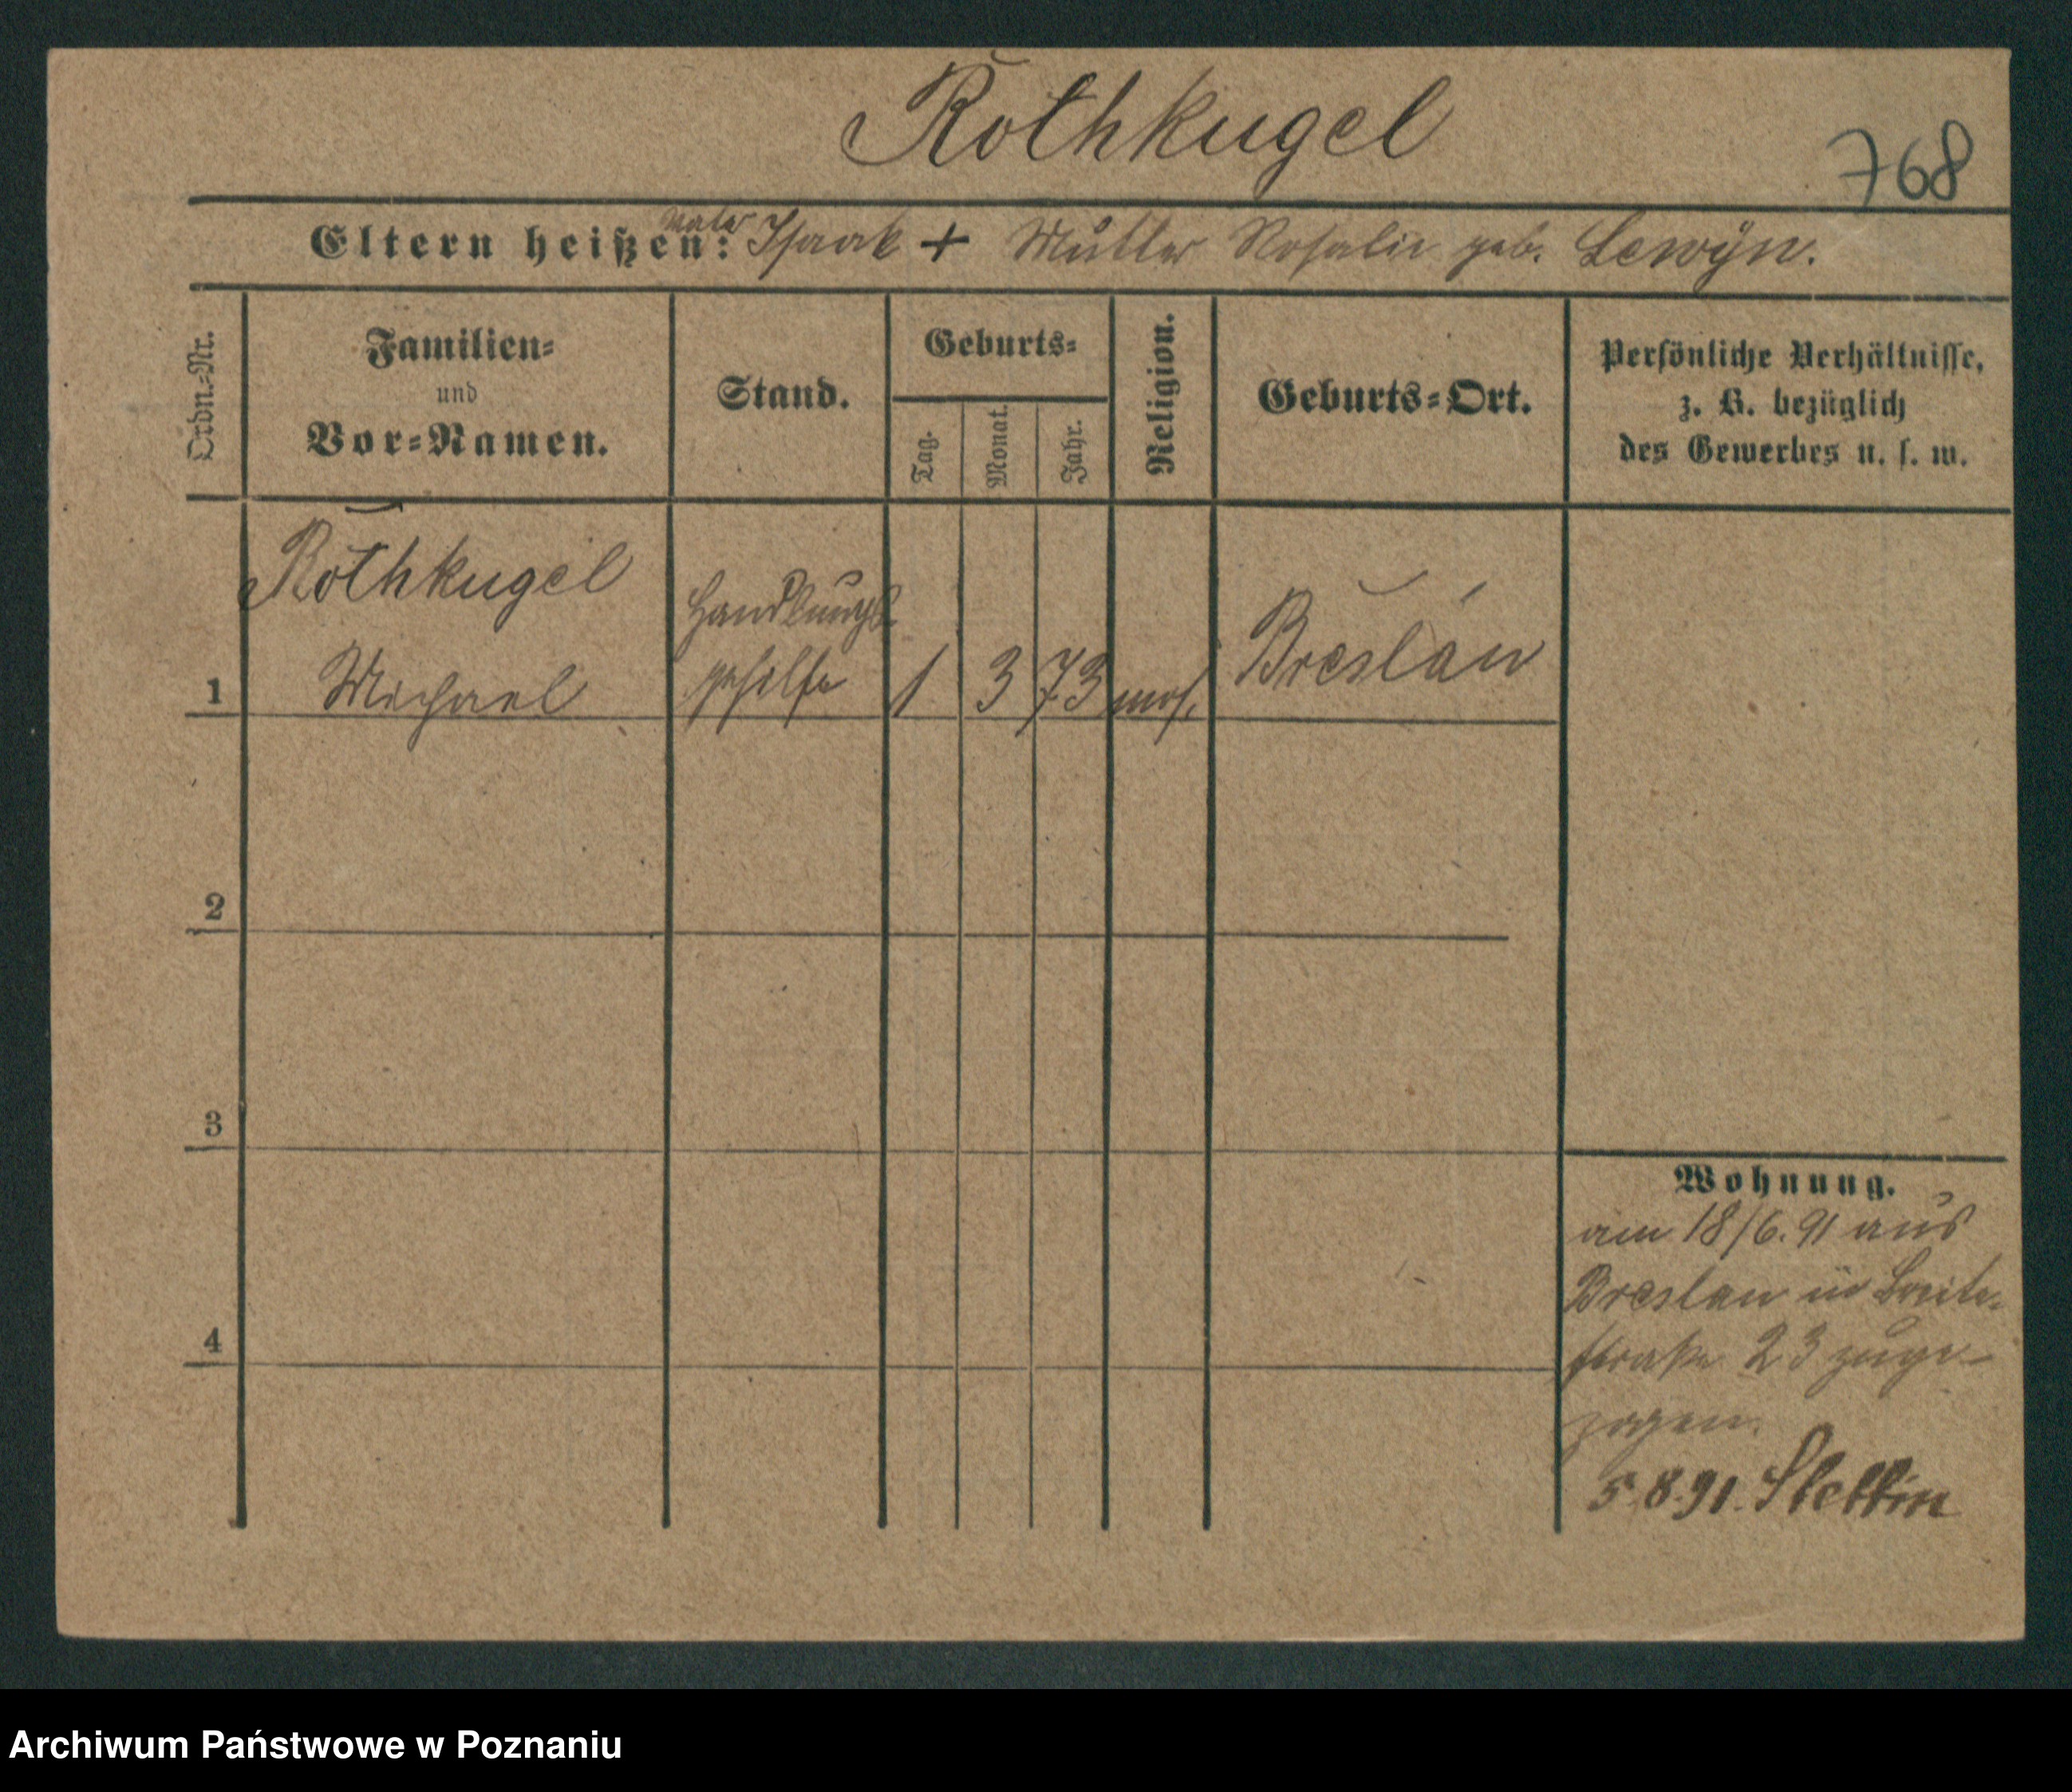 Rothkugel
768
Eltern heißen: Vater Isaak + Mutter Rosalie geb. Lewÿn.
Ordn.-Nr.
Familien-
und
Vor-Namen.
Stand.
Geburts-
Tag.
Monat.
Jahr.
Religion.
Geburts-Ort.
Persönliche Verhältnisse,
z. B. bezüglich
des Gewerbes u. s. w.
Rothkugel
Handlungs-
1 Michael gehilfe 1 3 73 mos. Breslau
2
3
4
Wohnung.
am 18/6. 91 aus
Breslau in Breite-
straße 23 zuge-
zogen.
5.8.91. Stettin
Archiwum Państwowe w Poznaniu